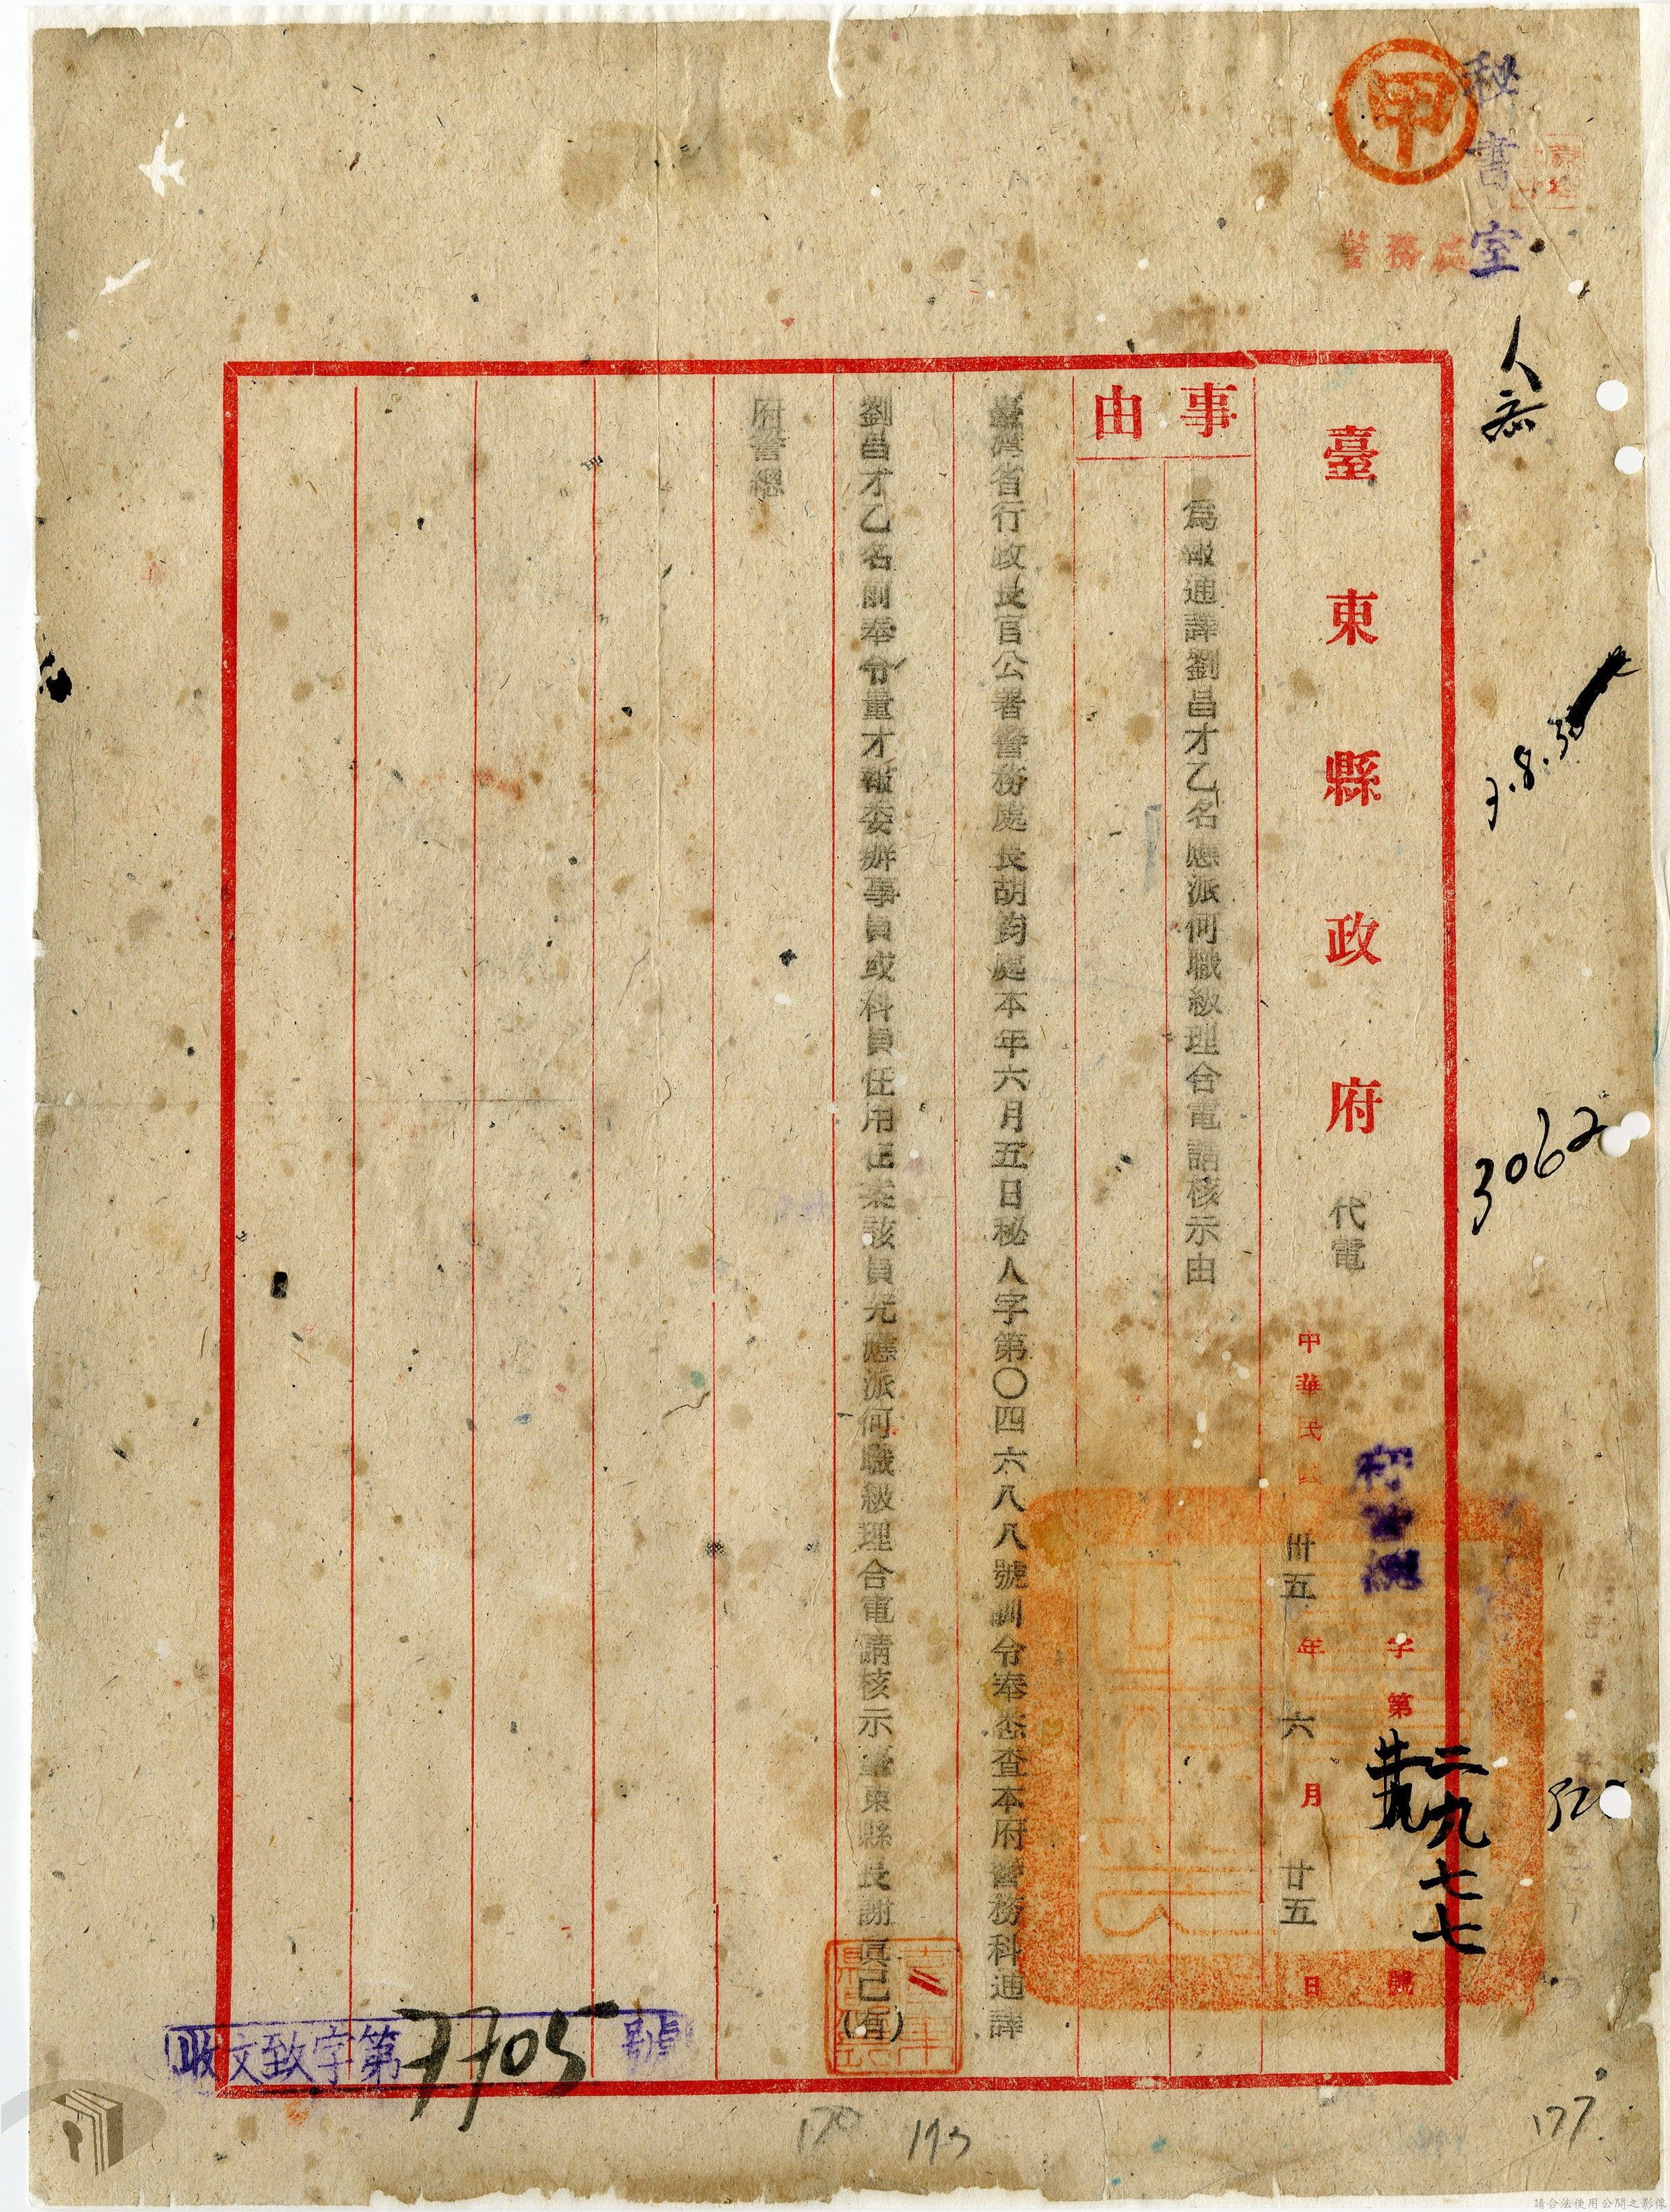 甲
秘書室
警務處
人
3062
臺東縣政府 代電
府警總 字第 二九七七 號
中華民國 卅五年 六月 廿五日
事由
為報通譯劉昌才乙名應派何職級理合電請核示由
臺灣省行政長官公署警務處長胡鈞鑒本年六月五日秘人字第〇四六八八號訓令奉悉查本府警務科通譯
劉昌才乙名前奉令量才報委辦事員或科員任用在案該員究應派何職級理合電請核示臺東縣長謝真己(有)
府警總
收文致字第7705號
170
193
177
請合法使用公開之影像